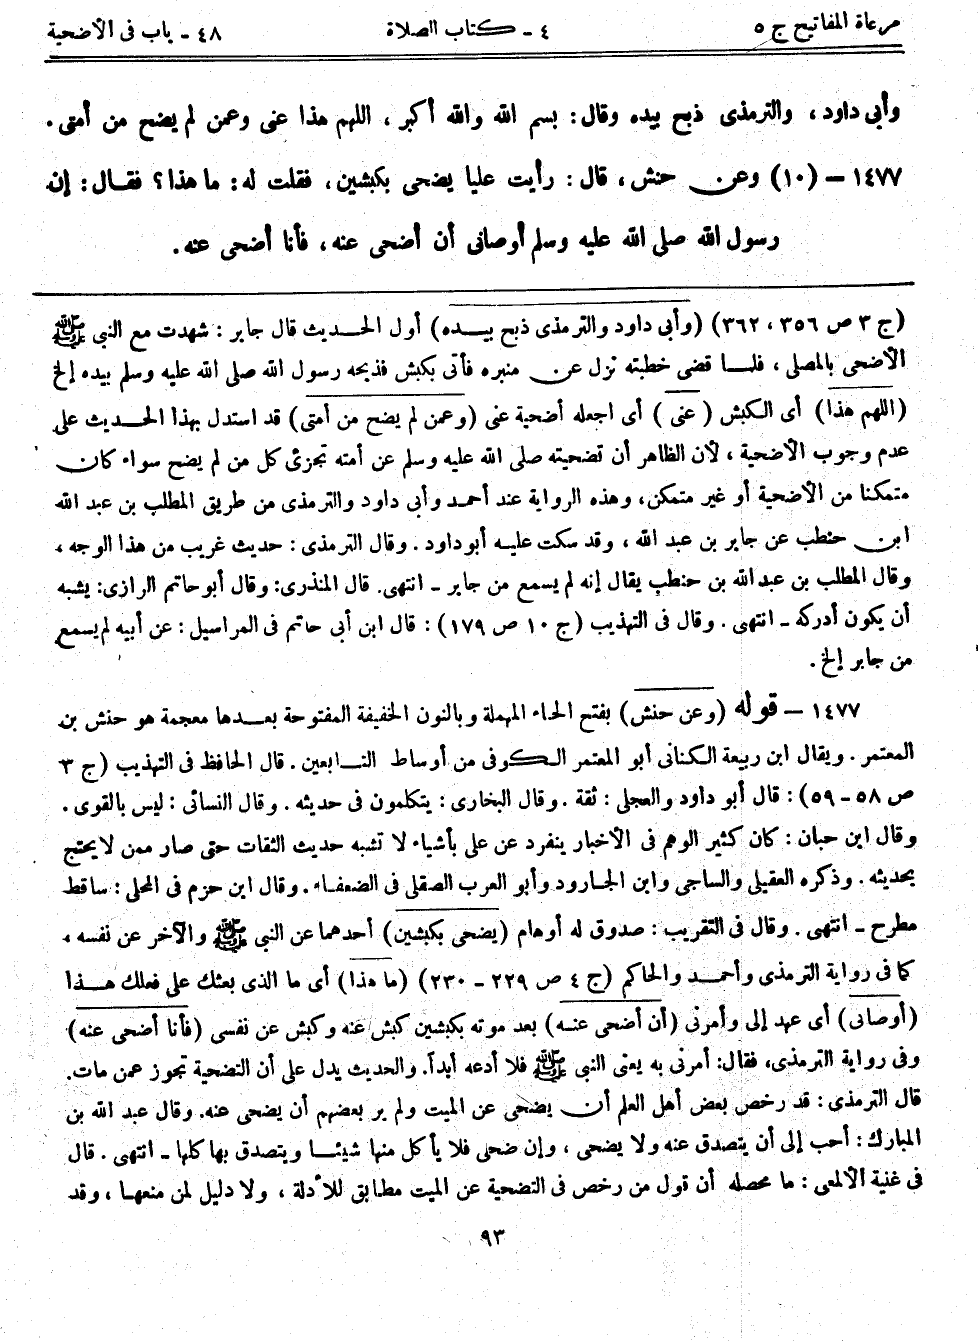 مرعاة المفاتيح ج ٥
٤ - كتاب الصلاة
٤٨ - باب فى الأضحية
وأبى داود، والترمذى ذبح بيده وقال: بسم الله والله أكبر، اللهم هذا عنى وعمن لم يضح من أمتى.
١٤٧٧ – (١٠) وعن حنش، قال: رأيت عليا يضحى بكبشين، فقلت له: ما هذا؟ فقال: إن
رسول الله صلى الله عليه وسلم أوصانى أن أضحى عنه، فأنا أضحى عنه.
(ج ٣ ص ٣٥٦، ٣٦٢) (وأبى داود والترمذى ذبح بيده) أول الحديث قال جابر: شهدت مع النبى ﷺ
الأضحى بالمصلى، فلما قضى خطبته نزل عن منبره فأتى بكبش فذبحه رسول الله صلى الله عليه وسلم بيده إلخ
(اللهم هذا) أى الكبش (عنى) أى اجعله أضحية عنى (وعمن لم يضح من أمتى) قد استدل بهذا الحديث على
عدم وجوب الأضحية، لأن الظاهر أن تضحيته صلى الله عليه وسلم عن أمته تجزئ كل من لم يضح سواء كان
متمكنا من الأضحية أو غير متمكن، وهذه الرواية عند أحمد وأبى داود والترمذى من طريق المطلب بن عبد الله
ابن حنطب عن جابر بن عبد الله، وقد سكت عليه أبو داود. وقال الترمذى: حديث غريب من هذا الوجه،
وقال المطلب بن عبد الله بن حنطب يقال إنه لم يسمع من جابر - انتهى. قال المنذرى: وقال أبو حاتم الرازى: يشبه
أن يكون أدركه - انتهى. وقال فى التهذيب (ج ١٠ ص ١٧٩): قال ابن أبى حاتم فى المراسيل: عن أبيه لم يسمع
من جابر إلخ.
١٤٧٧ – قوله (وعن حنش) بفتح الحاء المهملة وبالنون الخفيفة المفتوحة بعدها معجمة هو حنش بن
المعتمر. ويقال ابن ربيعة الكنانى أبو المعتمر الكوفى من أوساط التابعين. قال الحافظ فى التهذيب (ج ٣
ص ٥٨ - ٥٩): قال أبو داود والعجلى: ثقة. وقال البخارى: يتكلمون فى حديثه. وقال النسائى: ليس بالقوى.
وقال ابن حبان: كان كثير الوهم فى الأخبار ينفرد عن على بأشياء لا تشبه حديث الثقات حتى صار ممن لا يحتج
بحديثه. وذكره العقيلى والساجى وابن الجارود وأبو العرب الصقلى فى الضعفاء. وقال ابن حزم فى المحلى: ساقط
مطرح - انتهى. وقال فى التقريب: صدوق له أوهام (يضحى بكبشين) أحدهما عن النبى ﷺ والآخر عن نفسه،
كما فى رواية الترمذى وأحمد والحاكم (ج ٤ ص ٢٢٩ - ٢٣٠) (ما هذا) أى ما الذى بعثك على فعلك هذا
(أوصانى) أى عهد إلى وأمرنى (أن أضحى عنه) بعد موته بكبشين كبش عنه وكبش عن نفسى (فأنا أضحى عنه)
وفى رواية الترمذى، فقال: أمرنى به يعنى النبى ﷺ فلا أدعه أبداً. والحديث يدل على أن التضحية تجوز عمن مات.
قال الترمذى: قد رخص بعض أهل العلم أن يضحى عن الميت ولم ير بعضهم أن يضحى عنه. وقال عبد الله بن
المبارك: أحب إلى أن يتصدق عنه ولا يضحى، وإن ضحى فلا يأكل منها شيئا ويتصدق بها كلها - انتهى. قال
فى غنية الألمعى: ما محصله أن قول من رخص فى التضحية عن الميت مطابق للأدلة، ولا دليل لمن منعها، وقد
٩٣